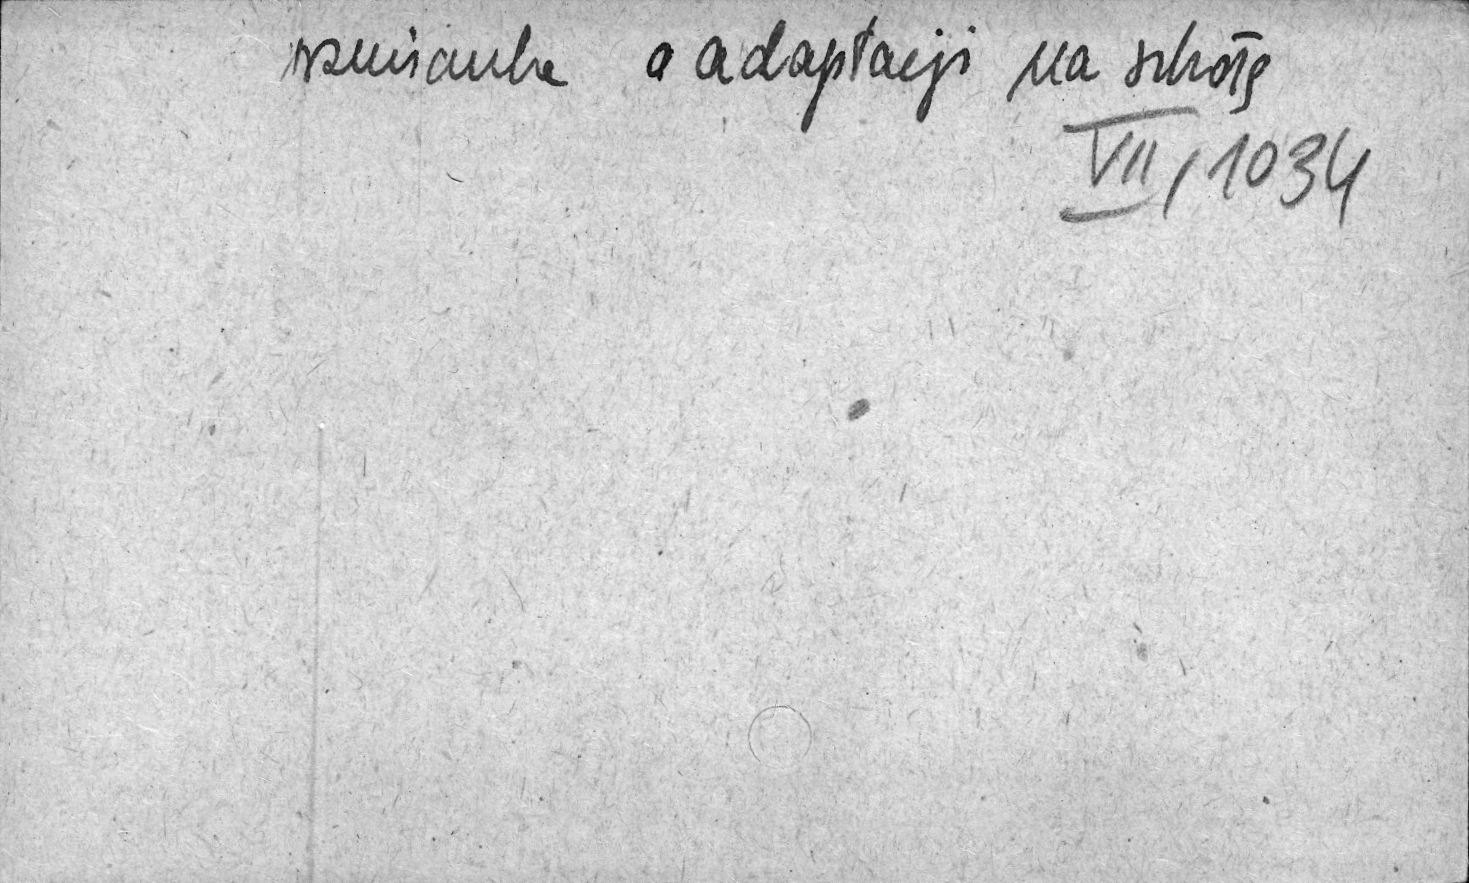 wzmianka o adaptacji na szkołę
VII, 1034